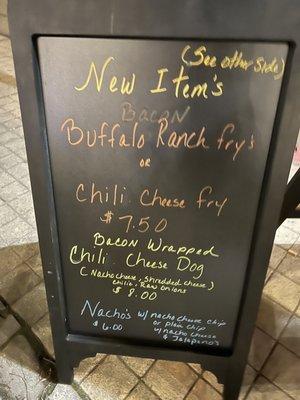 (See other side)
New Item's
Bacon
Buffalo Ranch fry's
or
Chili Cheese Fry
$7.50
Bacon Wrapped
Chili Cheese Dog
(Nacho cheese, shredded cheese)
Chili, Raw Onions
$8.00
Nachos w/ nacho cheese chip
or plain chip
$6.00 w/ nacho cheese
& Jalapeno's